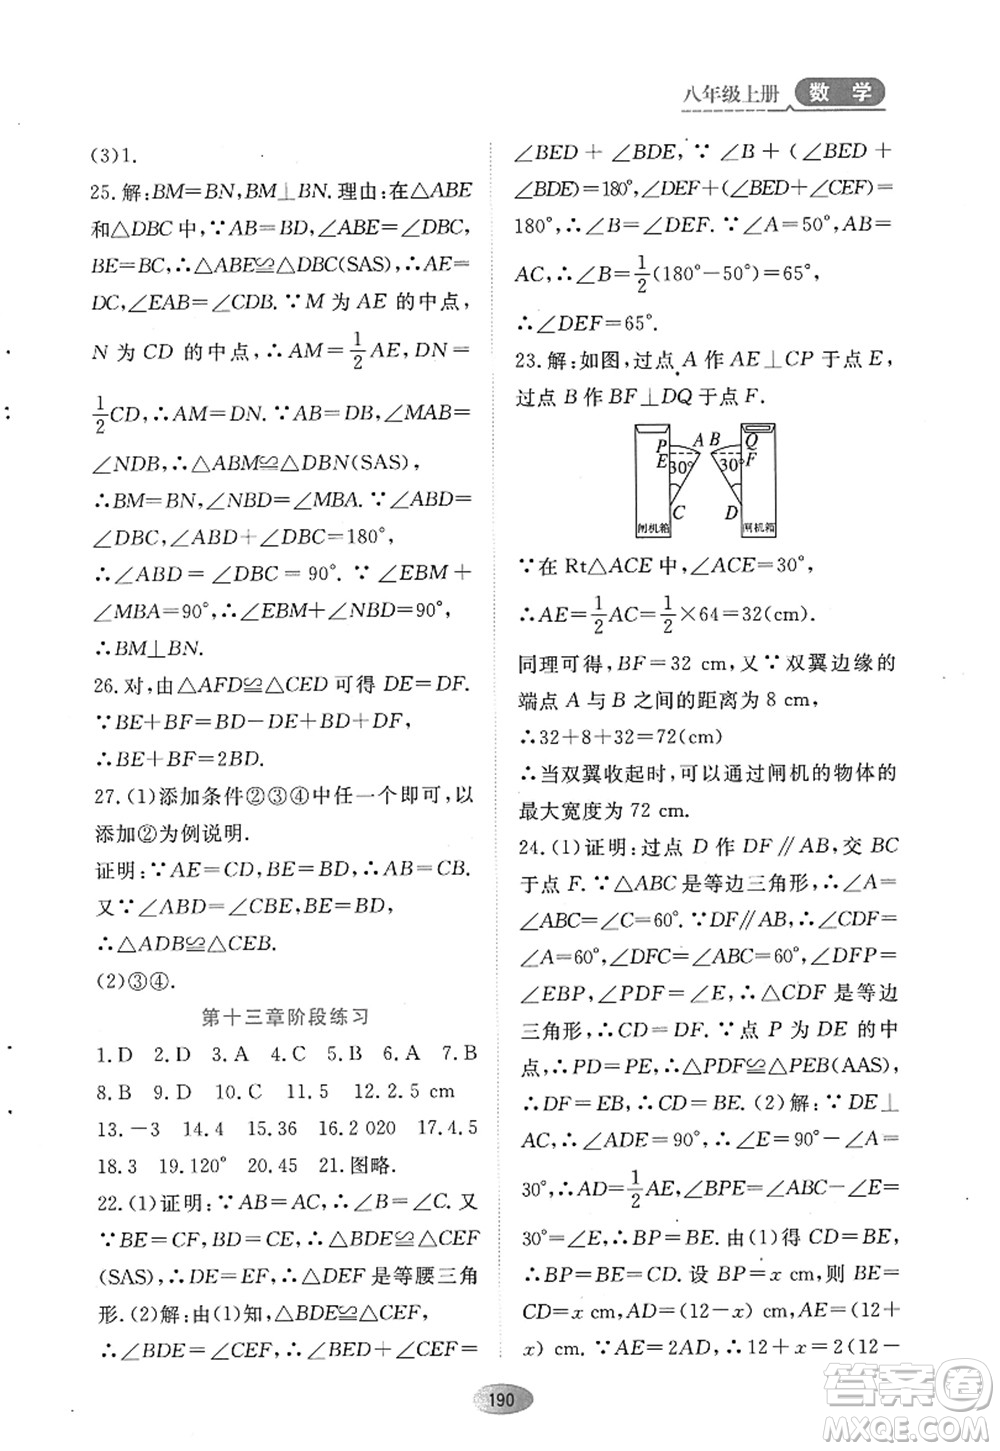 八年级上册 数学
(3)1.
25.解:BM=BN,BM⊥BN.理由:在△ABE
和△DBC中,∵AB=BD,∠ABE=∠DBC,
BE=BC,∴△ABE≌△DBC(SAS),∴AE=
DC,∠EAB=∠CDB.∵M 为 AE 的中点,
N 为 CD 的中点,∴AM=1/2AE,DN=
1/2CD,∴AM=DN.∵AB=DB,∠MAB=
∠NDB,∴△ABM≌△DBN(SAS),
∴BM=BN,∠NBD=∠MBA.∵∠ABD=
∠DBC,∠ABD+∠DBC=180°,
∴∠ABD=∠DBC=90°.∵∠EBM+
∠MBA=90°,∴∠EBM+∠NBD=90°,
∴BM⊥BN.
26.对,由△AFD≌△CED可得DE=DF.
∵BE+BF=BD-DE+BD+DF,
∴BE+BF=2BD.
27.(1)添加条件②③④中任一个即可,以
添加②为例说明.
证明:∵AE=CD,BE=BD,∴AB=CB.
又∵∠ABD=∠CBE,BE=BD,
∴△ADB≌△CEB.
(2)③④.
第十三章阶段练习
1.D 2.D 3.A 4.C 5.C 6.A 7.B
8.B 9.D 10.C 11.5 12.2.5 cm
13.-3 14.4 15.36 16.2 020 17.4.5
18.3 19.120° 20.45 21.图略.
22.(1)证明:∵AB=AC,∴∠B=∠C.又
∵BE=CF,BD=CE,∴△BDE≌△CEF
(SAS),∴DE=EF,∴△DEF是等腰三角
形.(2)解:由(1)知,△BDE≌△CEF,
∴∠BDE=∠CEF,∴∠BED+∠CEF=
∠BED+∠BDE,∵∠B+(∠BED+
∠BDE)=180°,∠DEF+(∠BED+∠CEF)=
180°,∴∠B=∠DEF.∵∠A=50°,AB=
AC,∴∠B=1/2(180°-50°)=65°,
∴∠DEF=65°.
23.解:如图,过点A作AE⊥CP于点E,
过点B作BF⊥DQ于点F.
P A B Q
E 30° 30° F
C D
闸机箱 闸机箱
∵在Rt△ACE中,∠ACE=30°,
∴AE=1/2AC=1/2×64=32(cm).
同理可得,BF=32 cm,又∵双翼边缘的
端点A与B之间的距离为8 cm,
∴32+8+32=72(cm)
∴当双翼收起时,可以通过闸机的物体的
最大宽度为72 cm.
24.(1)证明:过点D作DF∥AB,交BC
于点F.∵△ABC是等边三角形,∴∠A=
∠ABC=∠C=60°.∵DF∥AB,∴∠CDF=
∠A=60°,∠DFC=∠ABC=60°,∠DFP=
∠EBP,∴∠FDC=60°,∴△CDF是等边
三角形,∴CD=DF.∵点P为DE的中
点,∴PD=PE,∴△PDF≌△PEB(AAS),
∴DF=EB,∴CD=BE.(2)解:∵DE⊥
AC,∴∠ADE=90°,∴∠E=90°-∠A=
30°,∴AD=1/2AE,∠BPE=∠ABC-∠E=
30°=∠E,∴BP=BE.由(1)得CD=BE,
∴BP=BE=CD.设BP=x cm,则BE=
CD=x cm,AD=(12-x) cm,AE=(12+
x) cm.∵AE=2AD,∴12+x=2(12-
190
答案圈
MXQE.COM